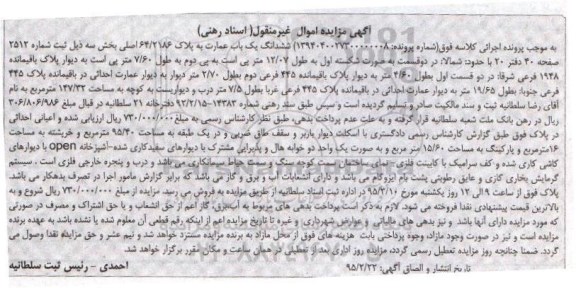 آگهی مزایده اموال غیرمنقول( اسناد رهنی)
به موجب پرونده اجرائی کلاسه فوق(شماره پرونده: ۱۳۹۴۰۴۰۰۲۷۳۰۰۰۰۰۰۸) ششدانگ یک باب عمارت به پلاک ۶۴/۲۱۸۶ اصلی بخش سه ذیل ثبت شماره ۲۵۱۲
صفحه ۴۰ دفتر ۲۰ با حدود: شمالا: در دوقسمت به صورت شکسته اول به طول ۱۲/۰۷ متر پی است به پی دوم به طول ۷/۶۰ متر پی است به پلاک باقیمانده
۱۹۴۸ فرعی شرقا: در دو قسمت اول بطول ۴/۶۰ متر به دیوار پلاک باقیمانده ۴۴۵ فرعی دوم بطول ۲/۷۰ متر دیوار به دیوار عمارت احداثی در باقیمانده پلاک ۴۴۵
فرعی جنوبا: بطول ۱۹/۶۵ متر به دیوار عمارت احداثی در باقیمانده پلاک ۴۴۵ فرعی غربا بطول ۷/۵ متر درب و دیواریست به کوچه به مساحت ۱۴۷/۳۲ مترمربع به نام
آقای رضا سلطانیه ثبت و سند مالکیت صادر و تسلیم گردیده است و سپس طبق سند رهنی شماره ۱۴۳۸۳-۹۲/۲/۱۵ دفترخانه ۲۱ سلطانیه در قبال مبلغ ۳۰۶/۸۰۶/۹۸۶
ریال در رهن بانک ملت شعبه سلطانیه قرار گرفته و به علت عدم پرداخت بدهی، طبق نظر کارشناس رسمی به مبلغ ۷۳۰/۰۰۰/۰۰۰ ریال ارزیابی شده و اعیانی احداثی
در پلاک فوق طبق گزارش کارشناس رسمی دادگستری با اسکلت دیوار باربر و سقف طاق ضربی و در یک طبقه به مساحت ۹۵/۴۰ مترمربع و خرپشته به مساحت
۱۶مترمربع و پارکینگ به مساحت ۱۵/۶۰ متر مربع و به صورت یک واحد دو خوابه هال و پذیرایی مشترک با دیوارهای سفیدکاری شده-آشپزخانه open با دیوارهای
کاشی کاری شده و کف سرامیک با کابینت فلزی- نمای ساختمان سمت کوچه سنگ و سمت حیاط سیمانکاری می‌باشد و درب و پنجره خارجی فلزی است . سیستم
گرمایش بخاری گازی و عایق رطوبتی پشت بام ایزوگام می باشد و دارای انشعابات آب و برق و گاز می باشد که برابر گزارش مامور اجرا در تصرف بدهکار می باشد.
پلاک فوق از ساعت ۹ الی ۱۲ روز یکشنبه مورخ ۹۵/۳/۱۰ در اداره ثبت اسناد سلطانیه از طریق مزایده به فروش می رسد. مزایده از مبلغ ۷۳۰/۰۰۰/۰۰۰ ریال شروع و به
بالاترین قیمت پیشنهادی نقدا فروخته می شود. لازم به ذکر است پرداخت بدهی های مربوط به آب،برق، گاز اعم از حق انشعاب و یا حق اشتراک و مصرف در صورتی
که مورد مزایده دارای آنها باشد و نیز بدهی های مالیاتی و عوارض شهرداری و غیره تا تاریخ مزایده اعم از اینکه رقم قطعی آن معلوم شده یا نشده باشد به عهده برنده
مزایده است و نیز در صورت وجود مازاد، وجوه پرداختی بابت هزینه های فوق از محل مازاد به برنده مزایده مسترد خواهد شد و نیم عشر و حق مزایده نقدا وصول می
گردد. ضمنا چنانچه روز مزایده تعطیل رسمی گردد، مزایده روز اداری بعد از تعطیلی در همان ساعت و مکان مقرر برگزار خواهد شد.
تاریخ انتشار و الصاق آگهی: ۹۵/۲/۲۲
احمدی - رئیس ثبت سلطانیه